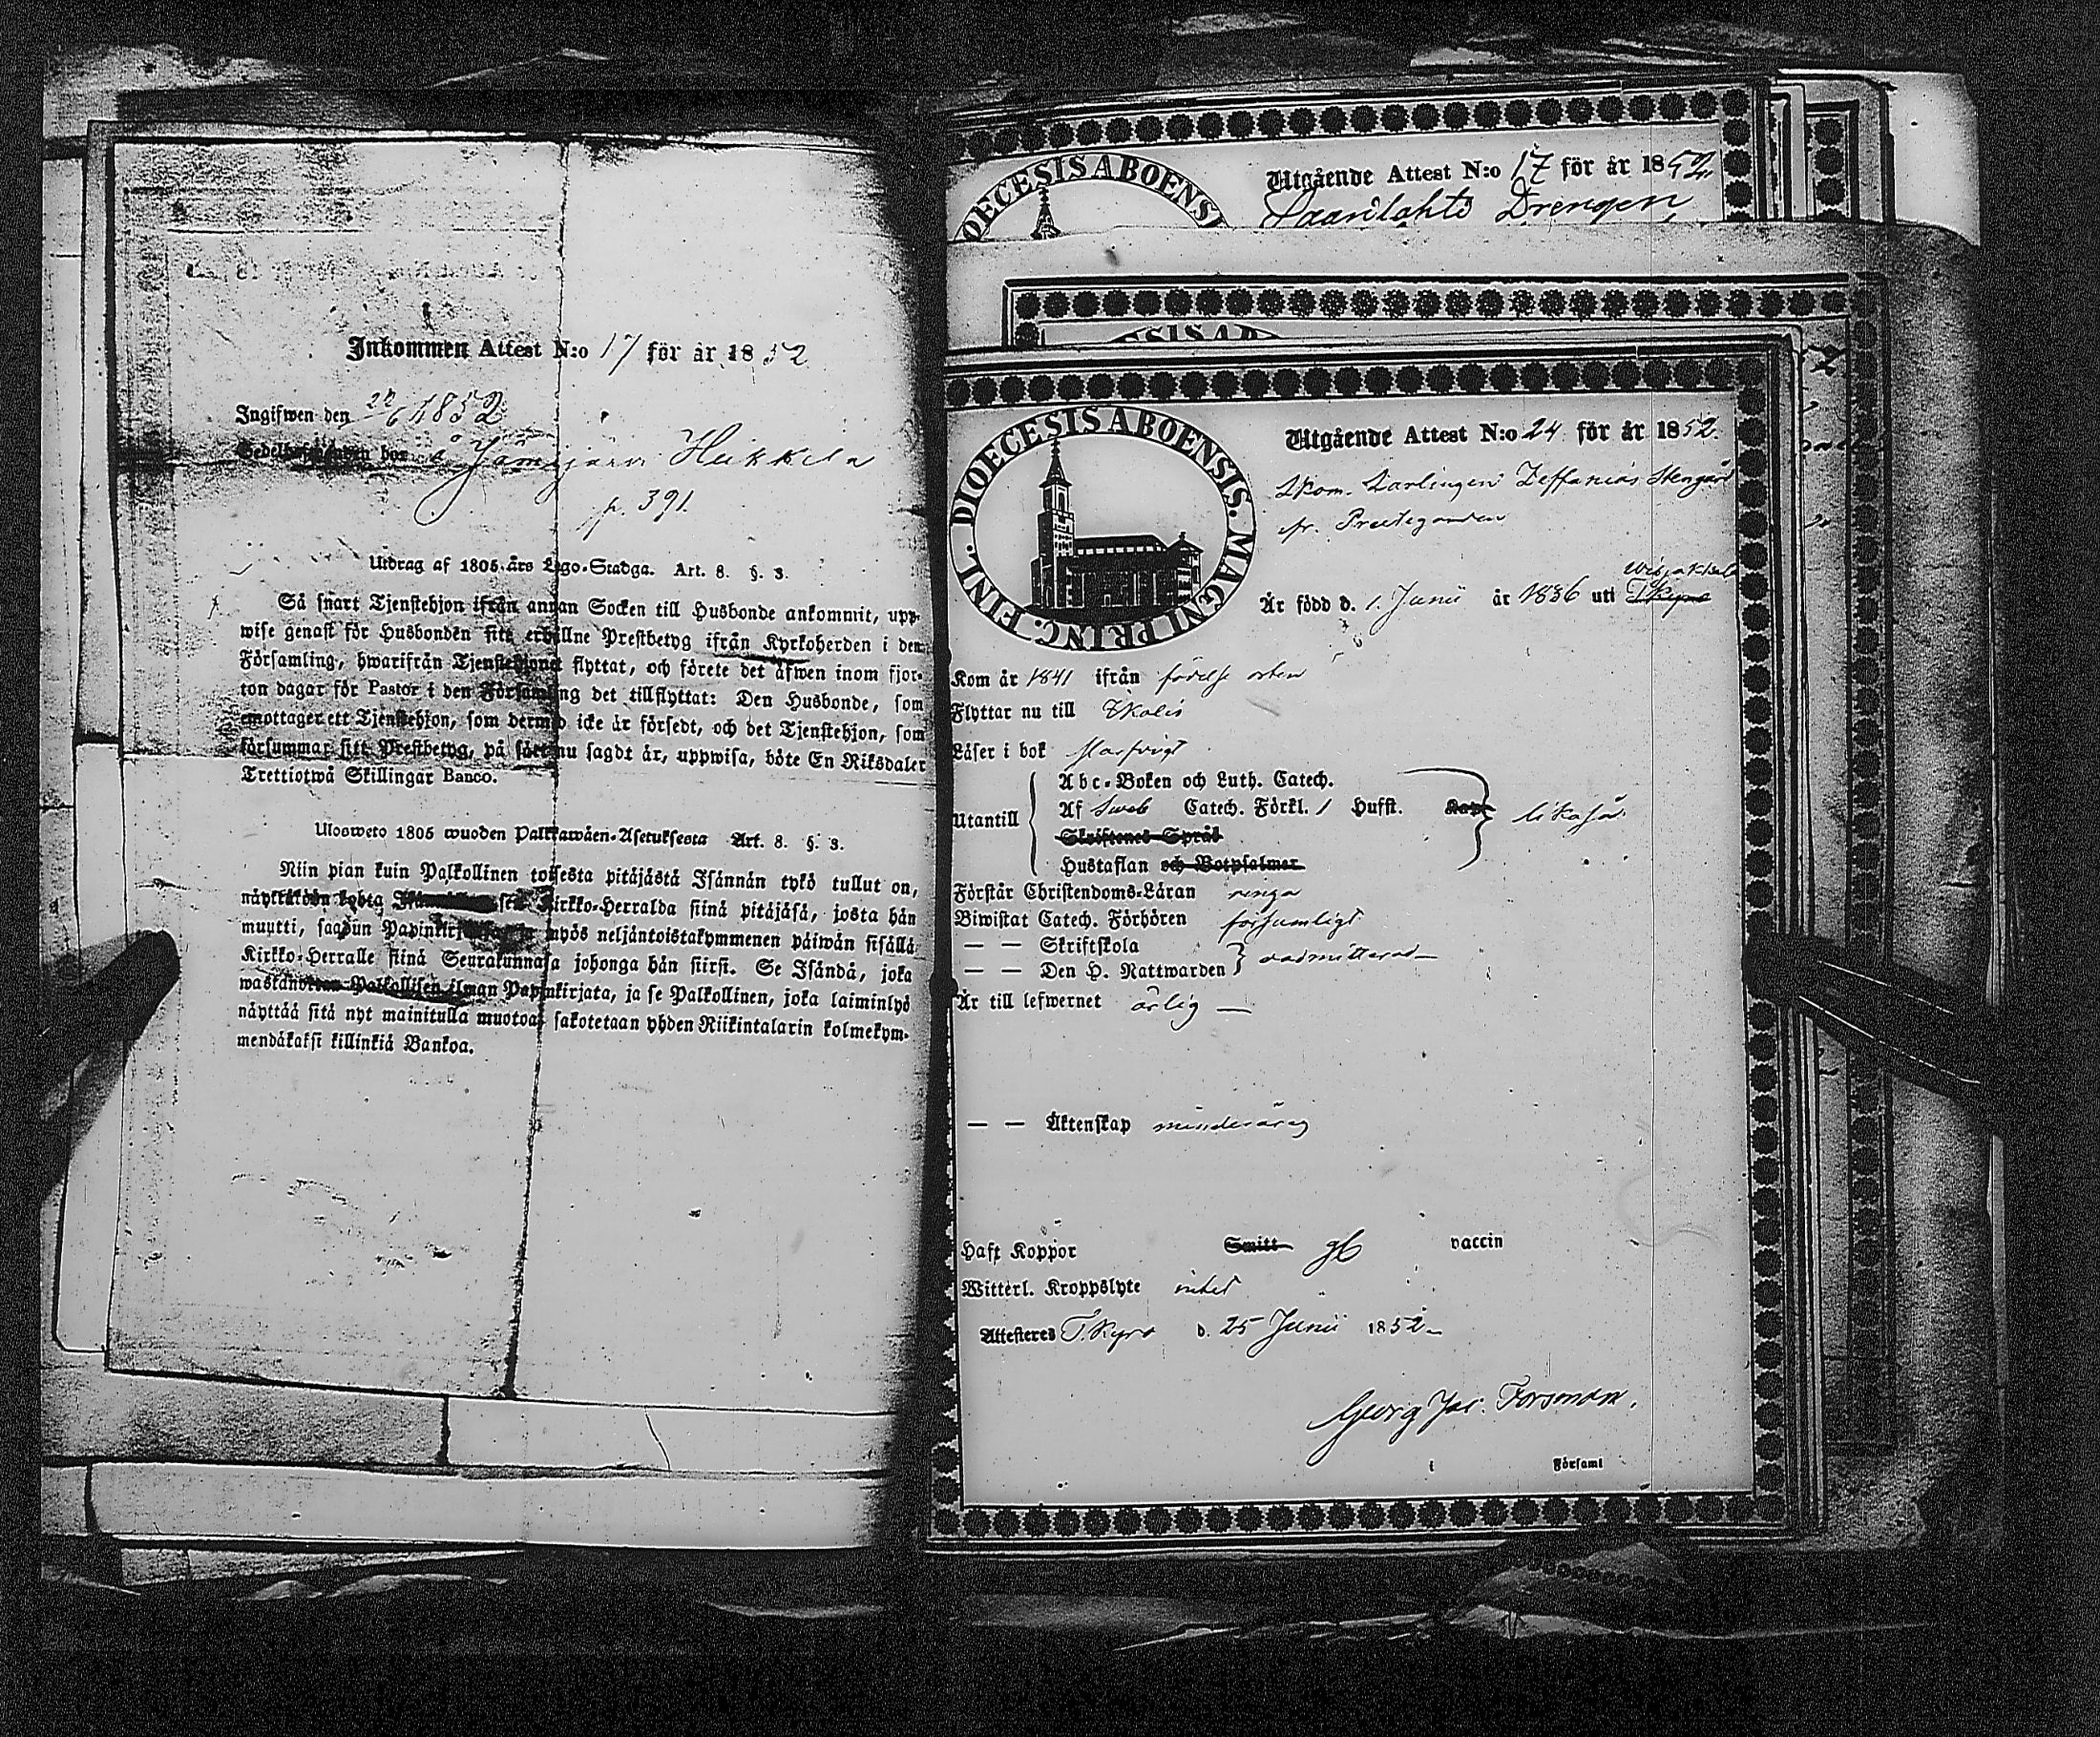 Inkommen Attest N:o 17 för år 1852
Ingifwen den 28/6 1852
Sedelhafwanden bor å Jämijärvi Heikkilä
p. 391.
Utdrag af 1805 års Lego-Stadga. Art. 8. §. 3.
Så snart Tjenstehjon ifrån annan Socken till Husbonde ankommit, upp-
wise genast för Husbonden sitt erhållne Prestbetyg ifrån Kyrkoherden i den
Församling, hwarifrån Tjenstehjonet flyttat, och förete det äfwen inom fjor-
ton dagar för Pastor i den Församling det tillflyttat: Den Husbonde, som
emottager ett Tjenstehjon, som dermed icke är försedt, och det Tjenstehjon, som
försummar sitt Prestbetyg, på sätt nu sagdt är, uppwisa, böte En Riksdaler
Trettiotwå Skillingar Banco.
Ulosweto 1805 wuoden Palkkawäen-Asetuksesta Art. 8. §. 3.
Niin pian kuin Palkollinen toisesta pitäjästä Isännän tykö tullut on,
näyttäköön kohta Kirkko-Herralda siinä pitäjäsä, josta hän
muutti, saadun Papinkirjansa ja myös neljäntoistakymmenen päiwän sisällä
Kirkko-Herralle siinä Seurakunnasa johonga hän siirsi. Se Isändä, joka
wastanottaa Palkollisen ilman Papinkirjata, ja se Palkollinen, joka laiminlyö
näyttää sitä nyt mainitulla muotoa, sakotetaan yhden Riikintalarin kolmekym-
mendäkaksi killinkiä Bankoa.
DIOECESIS ABOENSI
Utgående Attest N:o 17 för år 1852.
Saarilahti Drengen
DIOECESIS ABOENSIS. MAGNI PRINC. FINL.
Utgående Attest N:o 24 för år 1852.
Skom. Lärlingen Zeffanias Stengård
fr. Prestegården
Är född d. 1. Junii år 1836 uti T.Kyro
Kom år 1841 ifrån födelse orten
Flyttar nu till Ikalis
Läser i bok
Utantill
Abc-Boken och Luth. Catech.
Af Sweb Catech. Förkl. 1 Hufst. Kap likaså
Skriftenes Språk
Hustaflan och Botpsalmer
Förstår Christendoms-Läran ringa
Biwistat Catech. Förhören försumligt
— — Skriftskola
— — Den H. Nattwarden oadmitterad —
Är till lefwernet ärlig —
— — Äktenskap minderårig
Haft Koppor Smitt vaccin
Witterl. Kroppslyte intet
Attesteres T.Kyro d. 25 Junii 1852 —
Georg Jac. Forsman.
i Församl